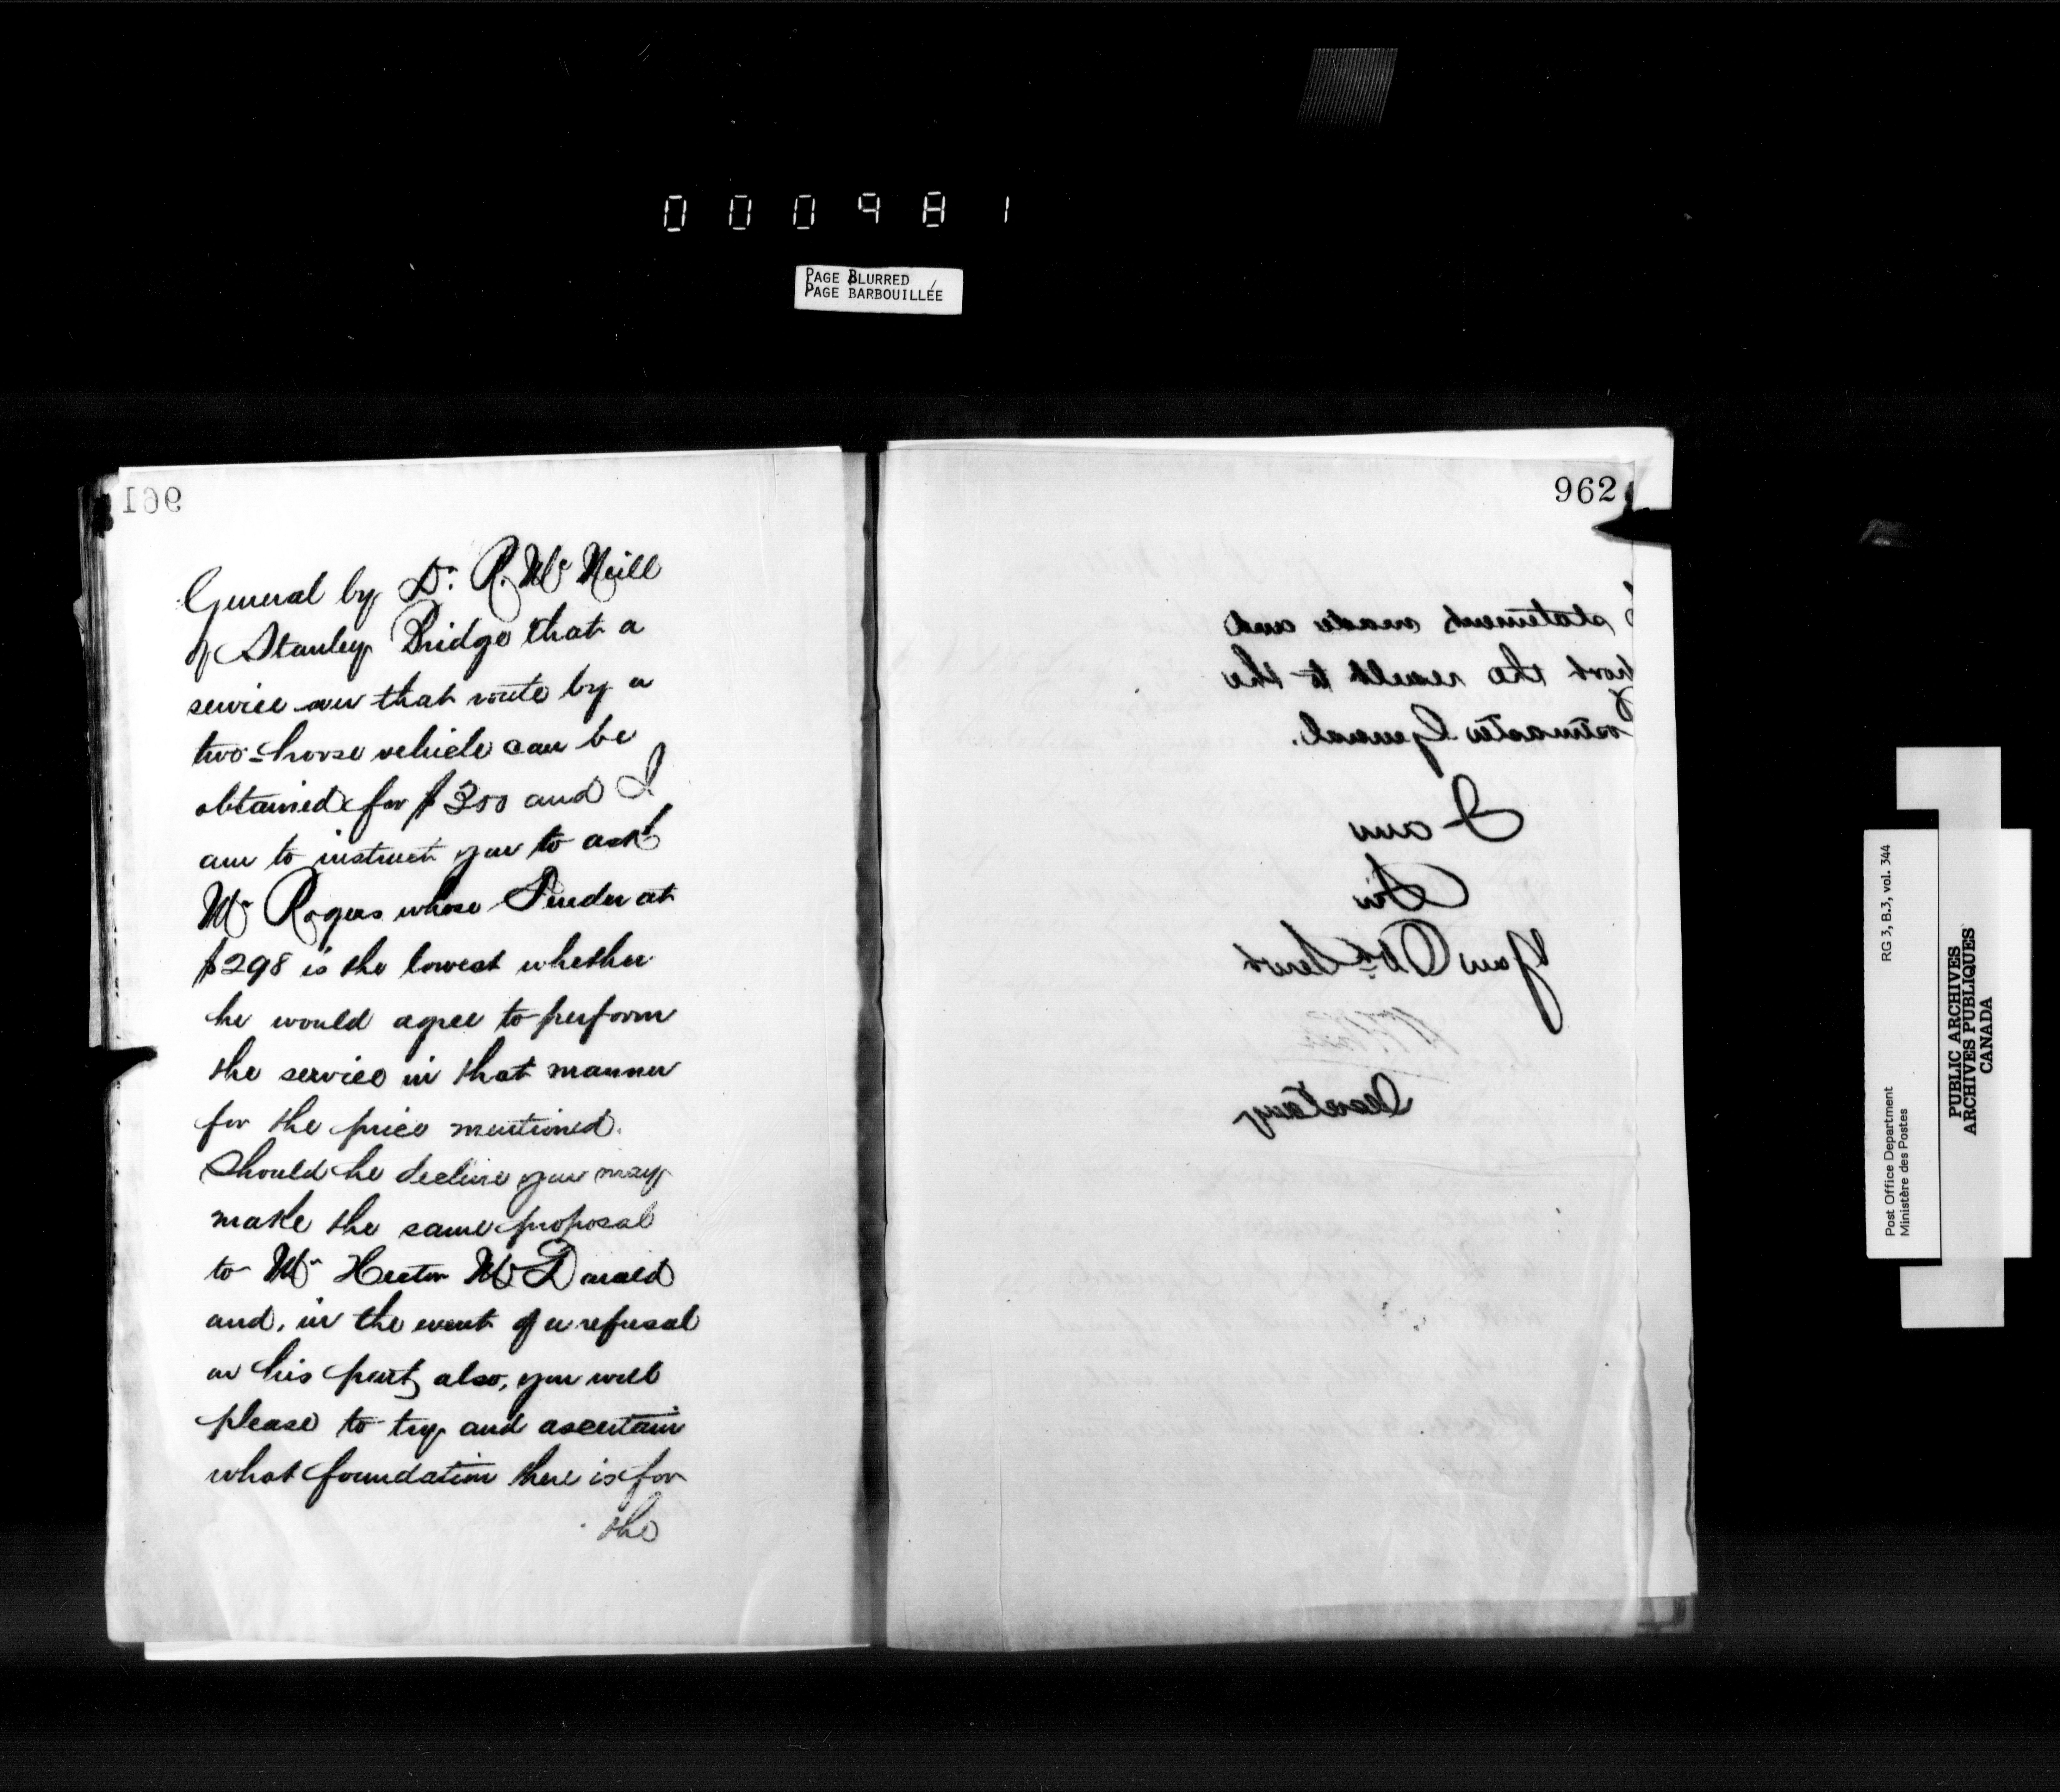 000981
PAGE BLURRED
PAGE BARBOUILLÉE
961
General by Dr. R. McNeill
of Stanley Bridge that a
service over that route by a
two-horse vehicle can be
obtained for $300 and I
am to instruct you to ask
Mr Rogers whose Tender at
$298 is the lowest whether
he would agree to perform
the service in that manner
for the price mentioned.
Should he decline you may
make the same proposal
to Mr Hector McDonald
and, in the event of a refusal
on his part also, you will
please to try and ascertain
what foundation there is for
the
962
statement made and
port the result to the
Postmaster General.
I am
Sir
Your Obt. Servt
Secretary
Post Office Department
Ministère des Postes
RG 3, B.3, vol. 344
PUBLIC ARCHIVES
ARCHIVES PUBLIQUES
CANADA